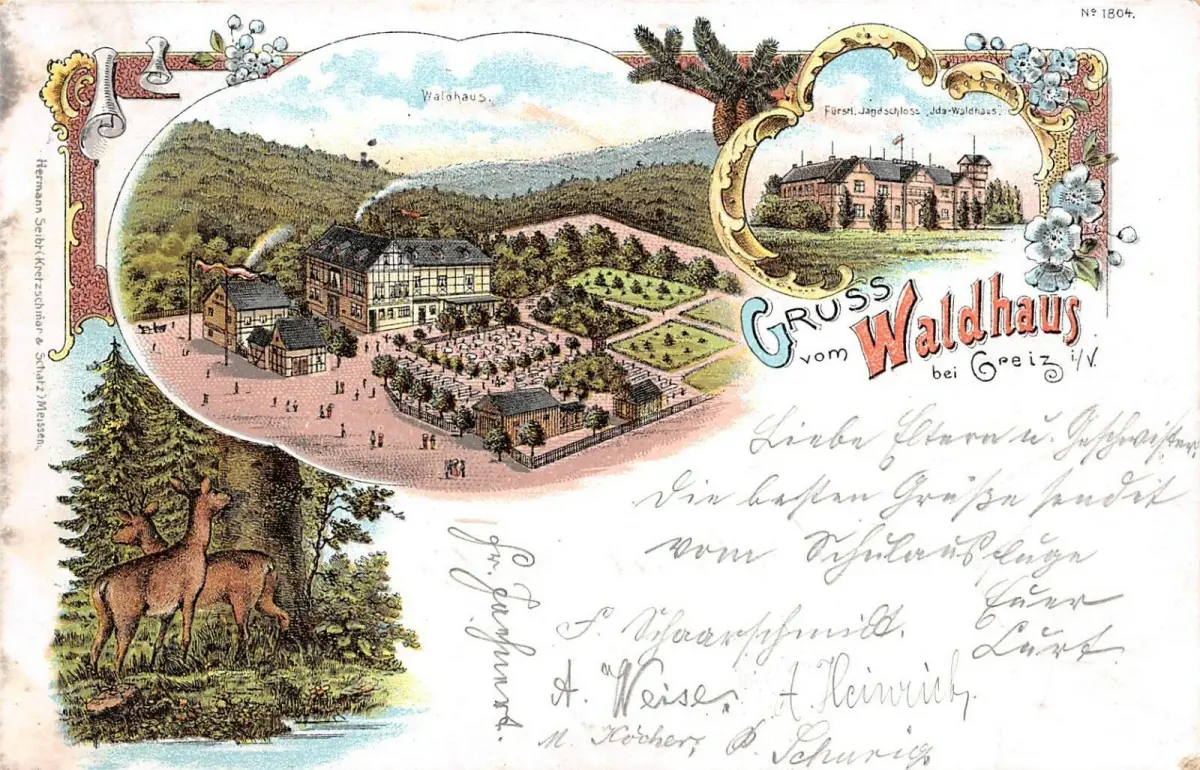 Nº 1804.
Waldhaus.
Fürstl. Jagdschloss „Jda-Waldhaus“.
GRUSS
vom Waldhaus
bei Greiz i/V.
Hermann Seibt (Kretzschmar & Schatz) Meissen.
Liebe Eltern u. Geschwister.
Die besten Grüße sendet
vom Schulausfluge
Euer
Curt.
F. Schaarschmidt.
A. Weise. A. Heinrich,
M. Köcher, P. Schurig
Fr.